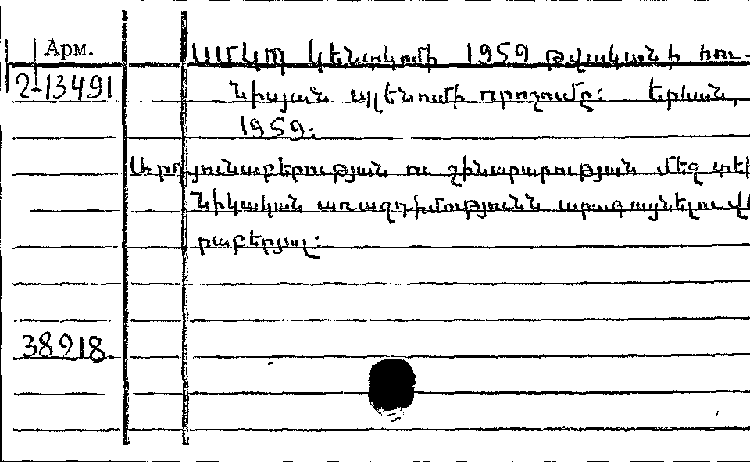 Арм.
ՍՄԿՊ կենտկոմի 1959 թվականի հու-
2-13491
նիսյան պլենումի որոշումը: Երևան,
1959.
Արդյունաբերության ու շինարարության մեջ տեխ
նիկական առաջդիմությունն արագացնելու վե
րաբերյալ:
38918.